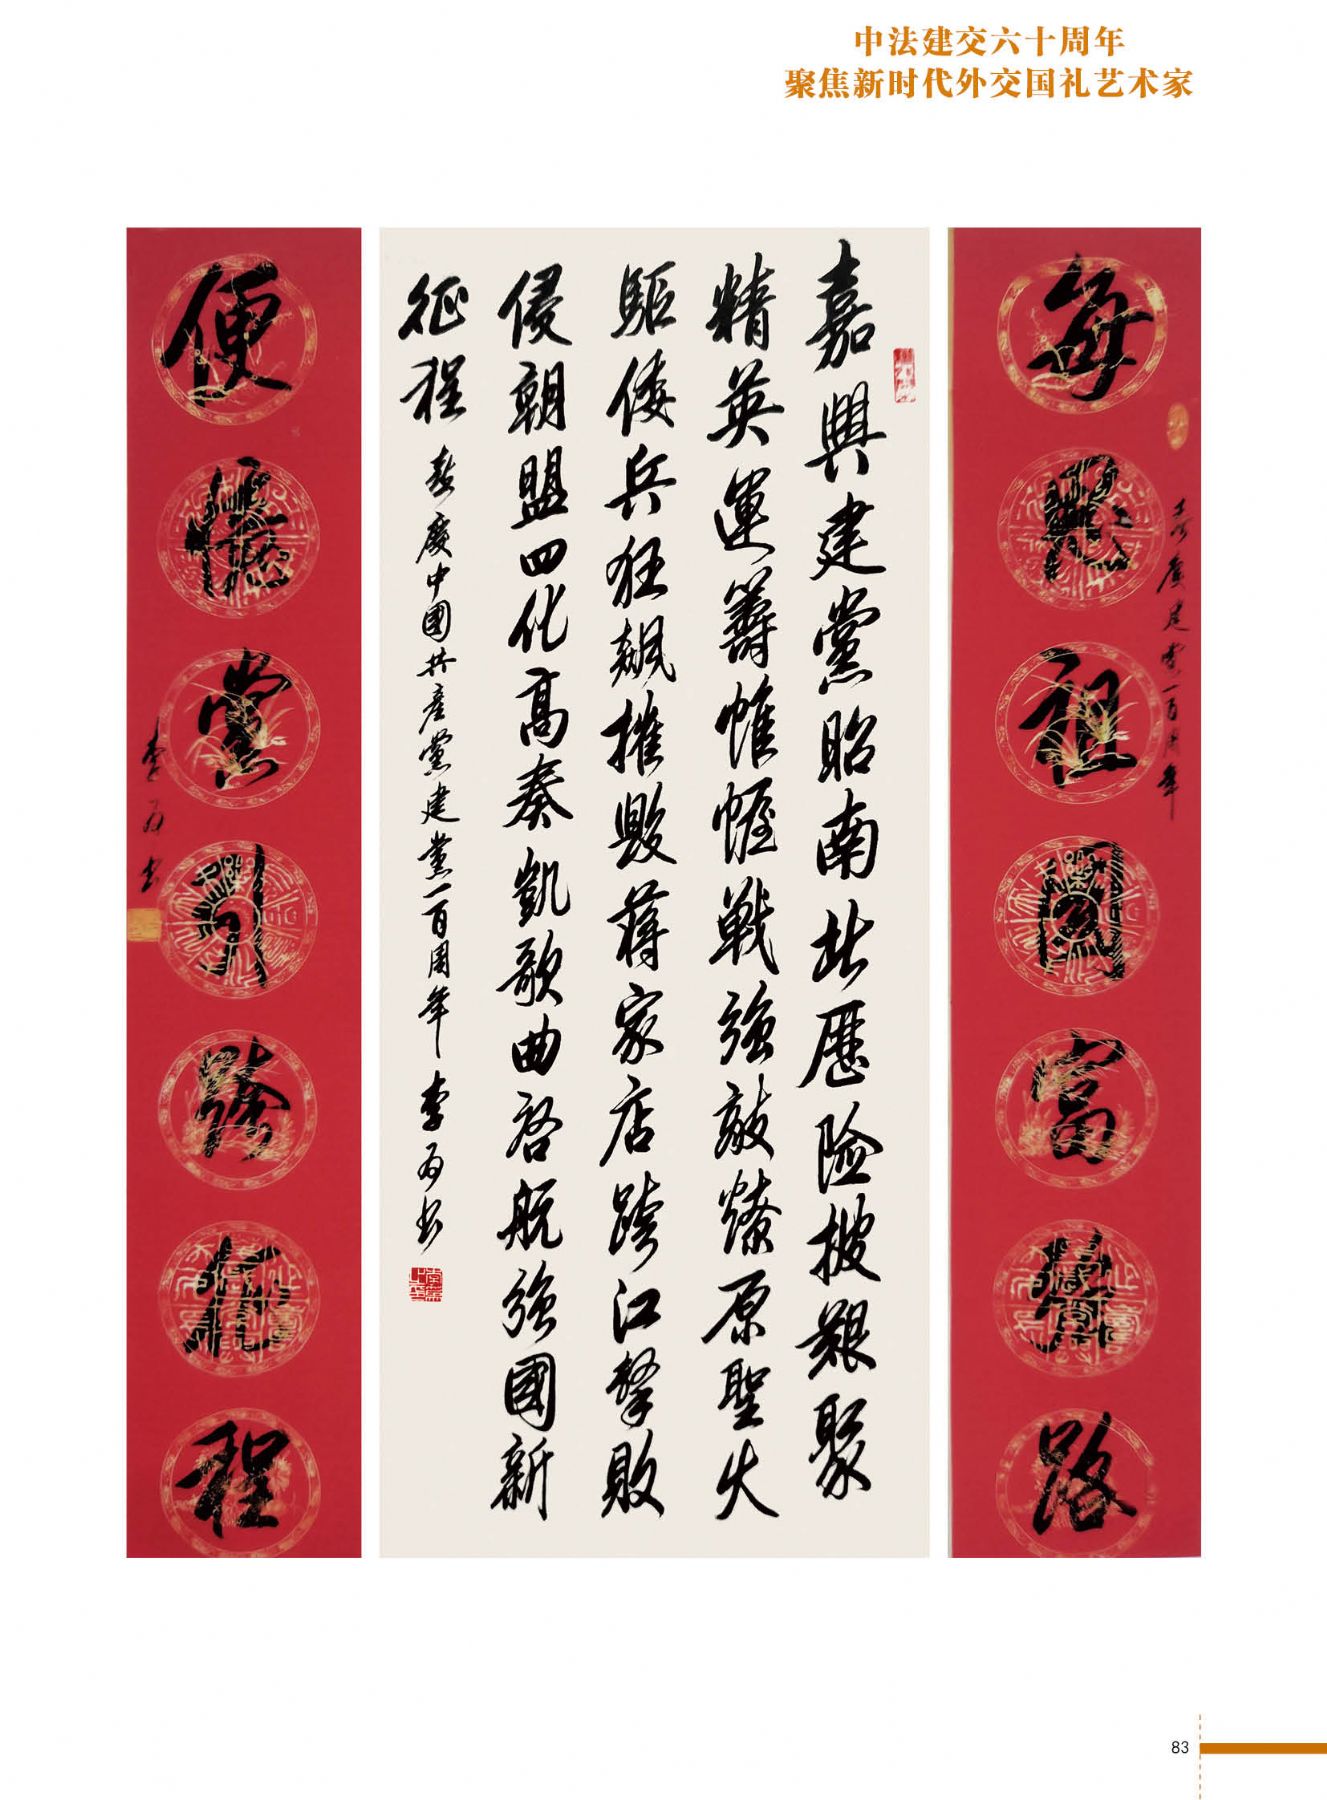 中法建交六十周年
聚焦新时代外交国礼艺术家
每思祖國富強路
喜慶建黨一百周年
嘉興建黨昭南北歷險披艱聚
精英運籌帷幄戰強敵燎原聖火
驅倭兵狂飆摧毀蔣家店跨江擊敗
侵朝盟四化高奏凱歌曲啓航強國新
征程 喜慶中國共產黨建黨一百周年 李为书
便憶黨引跨征程
李为书
83